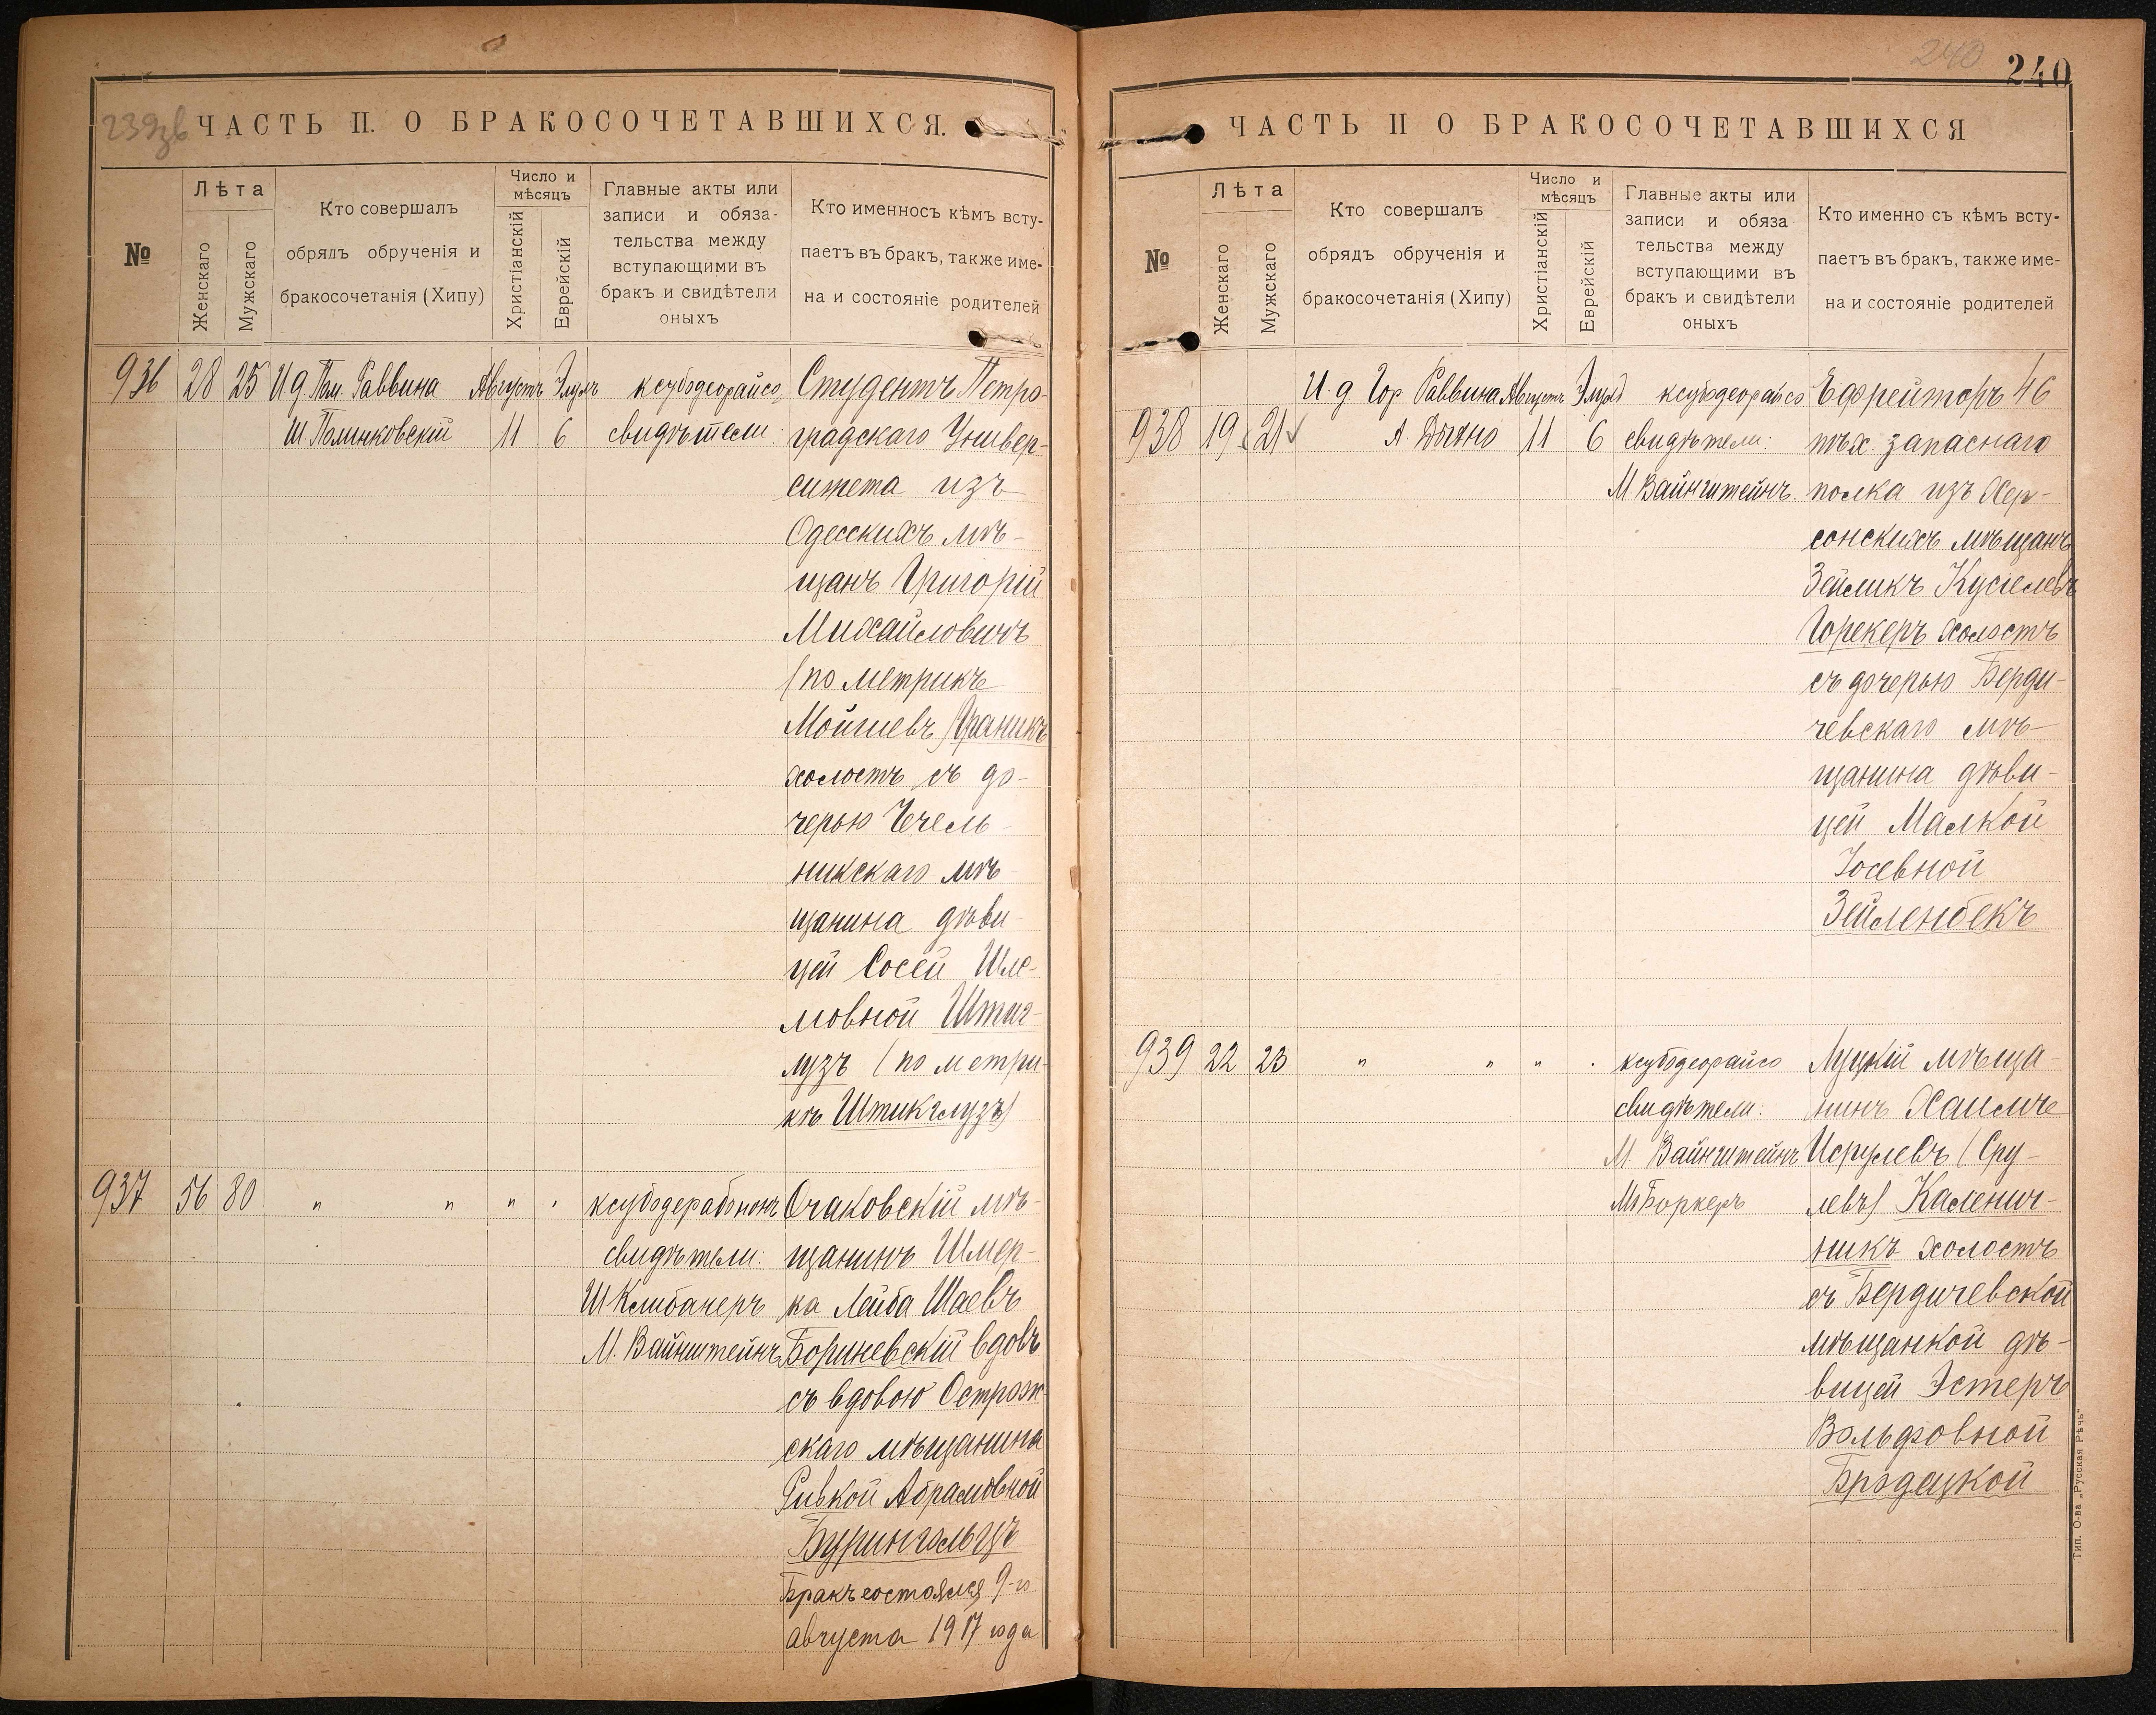 239зв
ЧАСТЬ II. О БРАКОСОЧЕТАВШИХСЯ.
№
Лѣта
Женскаго
Мужскаго
Кто совершалъ
обрядъ обрученія и
бракосочетанія (Хипу)
Число и
мѣсяцъ
Христіанскій
Еврейскій
Главные акты или
записи и обяза-
тельства между
вступающими въ
бракъ и свидѣтели
оныхъ
Кто именносъ кѣмъ всту-
паетъ въ бракъ, также име-
на и состояніе родителей
936 28 25 И д Пом. Раввина Августъ Элулъ ксубодеорайсо, Студентъ Петро-
Ш Полинковскій 11 6 свидѣтели: градскаго Универ-
ситета изъ
Одесскихъ мѣ-
щанъ Григорій
Михайловичъ
(по метрикѣ
Мойшевъ) Граникъ
холостъ съ до-
черью Чечель-
никскаго мѣ-
щанина дѣви-
цей Сосей Шле-
мовной Штиг-
лузъ (по метри-
кѣ Штикглузъ)
937 56 80 " " " " ксубодерабонон Очаковскій мѣ-
свидѣтели: щанинъ Шмер-
Ш Клибанеръ ка Лейба Шаевъ
М. Вайнштейнъ Бориневскій вдовъ
съ вдовою Острож-
скаго мѣщанина
Ривкой Абрамовной
Бурингольцъ
Бракъ состоялся 9-го
августа 1917 года
240
240
ЧАСТЬ II О БРАКОСОЧЕТАВШИХСЯ
№
Лѣта
Женскаго
Мужскаго
Кто совершалъ
обрядъ обрученія и
бракосочетанія (Хипу)
Число и
мѣсяцъ
Христіанскій
Еврейскій
Главные акты или
записи и обяза
тельства между
вступающими въ
бракъ и свидѣтели
оныхъ
Кто именно съ кѣмъ всту-
паетъ въ бракъ, также име-
на и состояніе родителей
И. д Гор Раввина Августъ Элулъ ксубодеорайсо Ефрейторъ 46
938 19 21 А. Дыхно 11 6 свидѣтели: пѣх. запаснаго
М Вайнштейнъ. полка изъ Хер-
сонскихъ мѣщанъ
Зейликъ Кусіелевъ
Горекеръ холостъ
съ дочерью Берди-
чевскаго мѣ-
щанина дѣви-
цей Малкой
Іосевной
Зейленбекъ
939 22 23 " " " " ксубодеорайсо Луцкій мѣща-
свидѣтели: нинъ Хаилче
М. Вайнштейнъ Исрулевъ (Сру-
М Боркеръ левъ) Каленич-
никъ холостъ
съ Бердичевской
мѣщанкой дѣ-
вицей Эстеръ
Вольфовной
Бродецкой
Тип. О-ва „Русская Рѣчь"